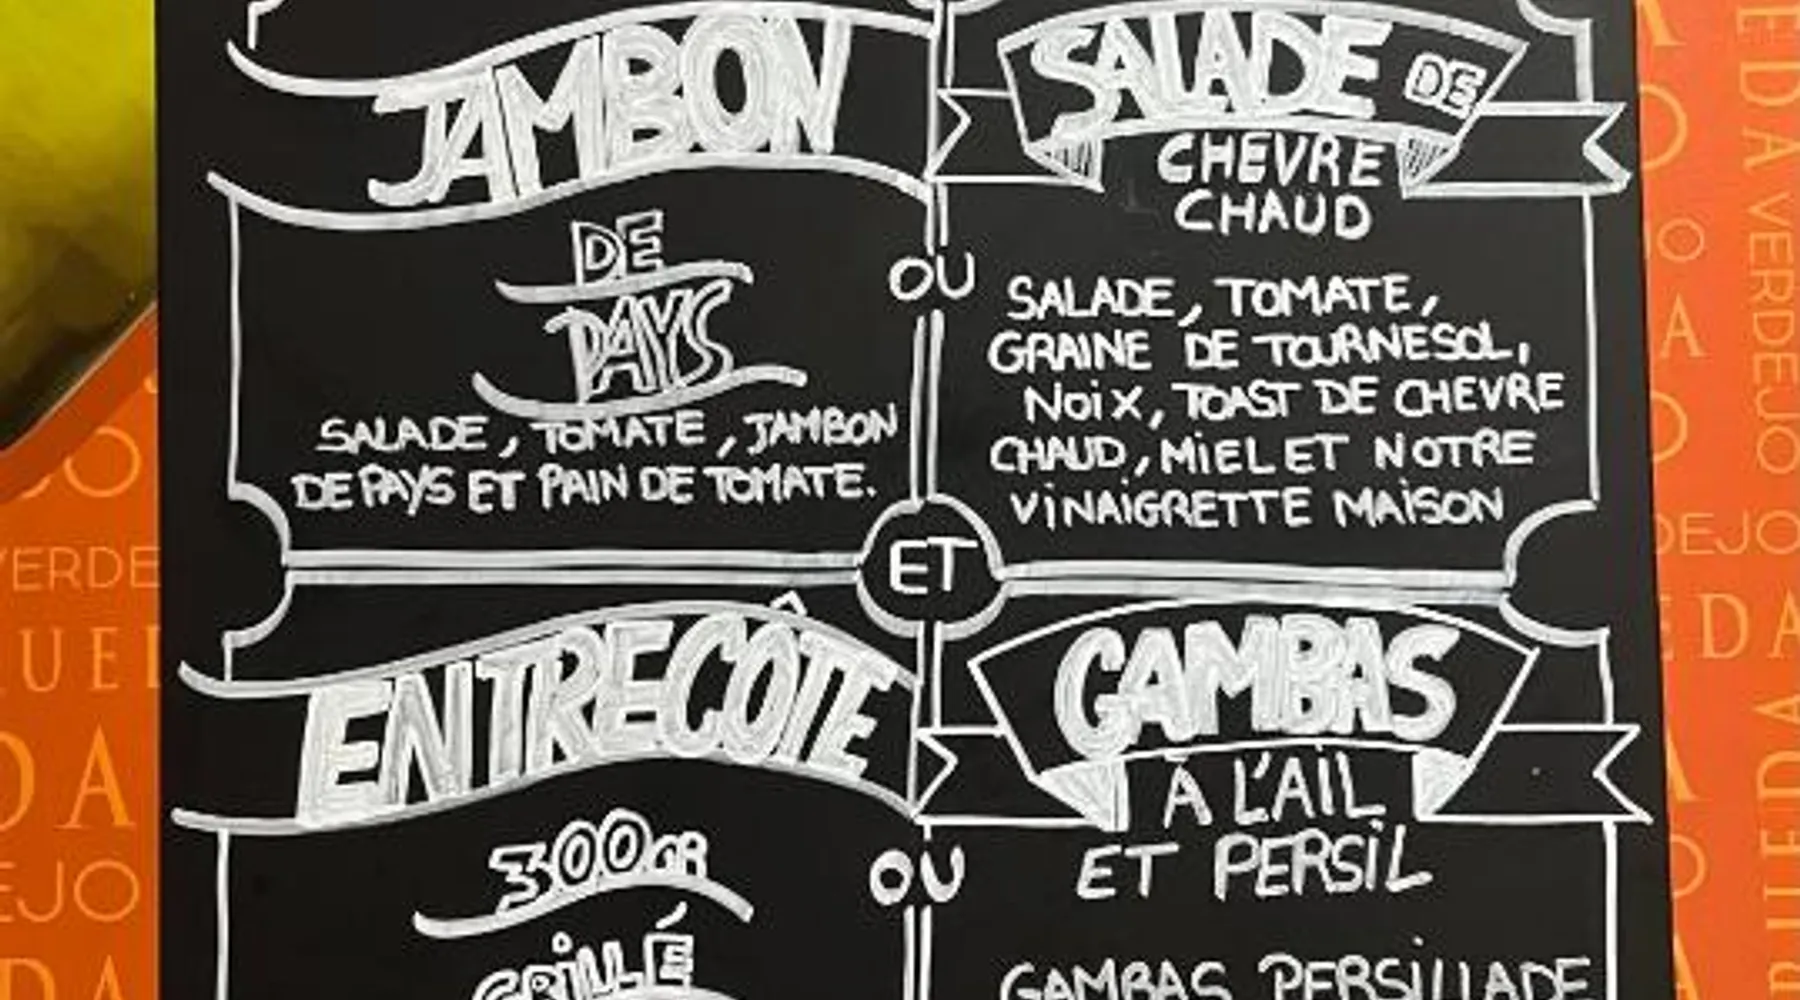 JAMBON
DE
PAYS
SALADE, TOMATE, JAMBON
DE PAYS ET PAIN DE TOMATE.
OU
SALADE DE
CHEVRE
CHAUD
SALADE, TOMATE,
GRAINE DE TOURNESOL,
NOIX, TOAST DE CHEVRE
CHAUD, MIEL ET NOTRE
VINAIGRETTE MAISON
ET
ENTRECÔTE
300GR
GRILLÉ
OU
GAMBAS
À L'AIL
ET PERSIL
GAMBAS PERSILLADE
VERDEJO
DEJO
EDA
DA
EJO